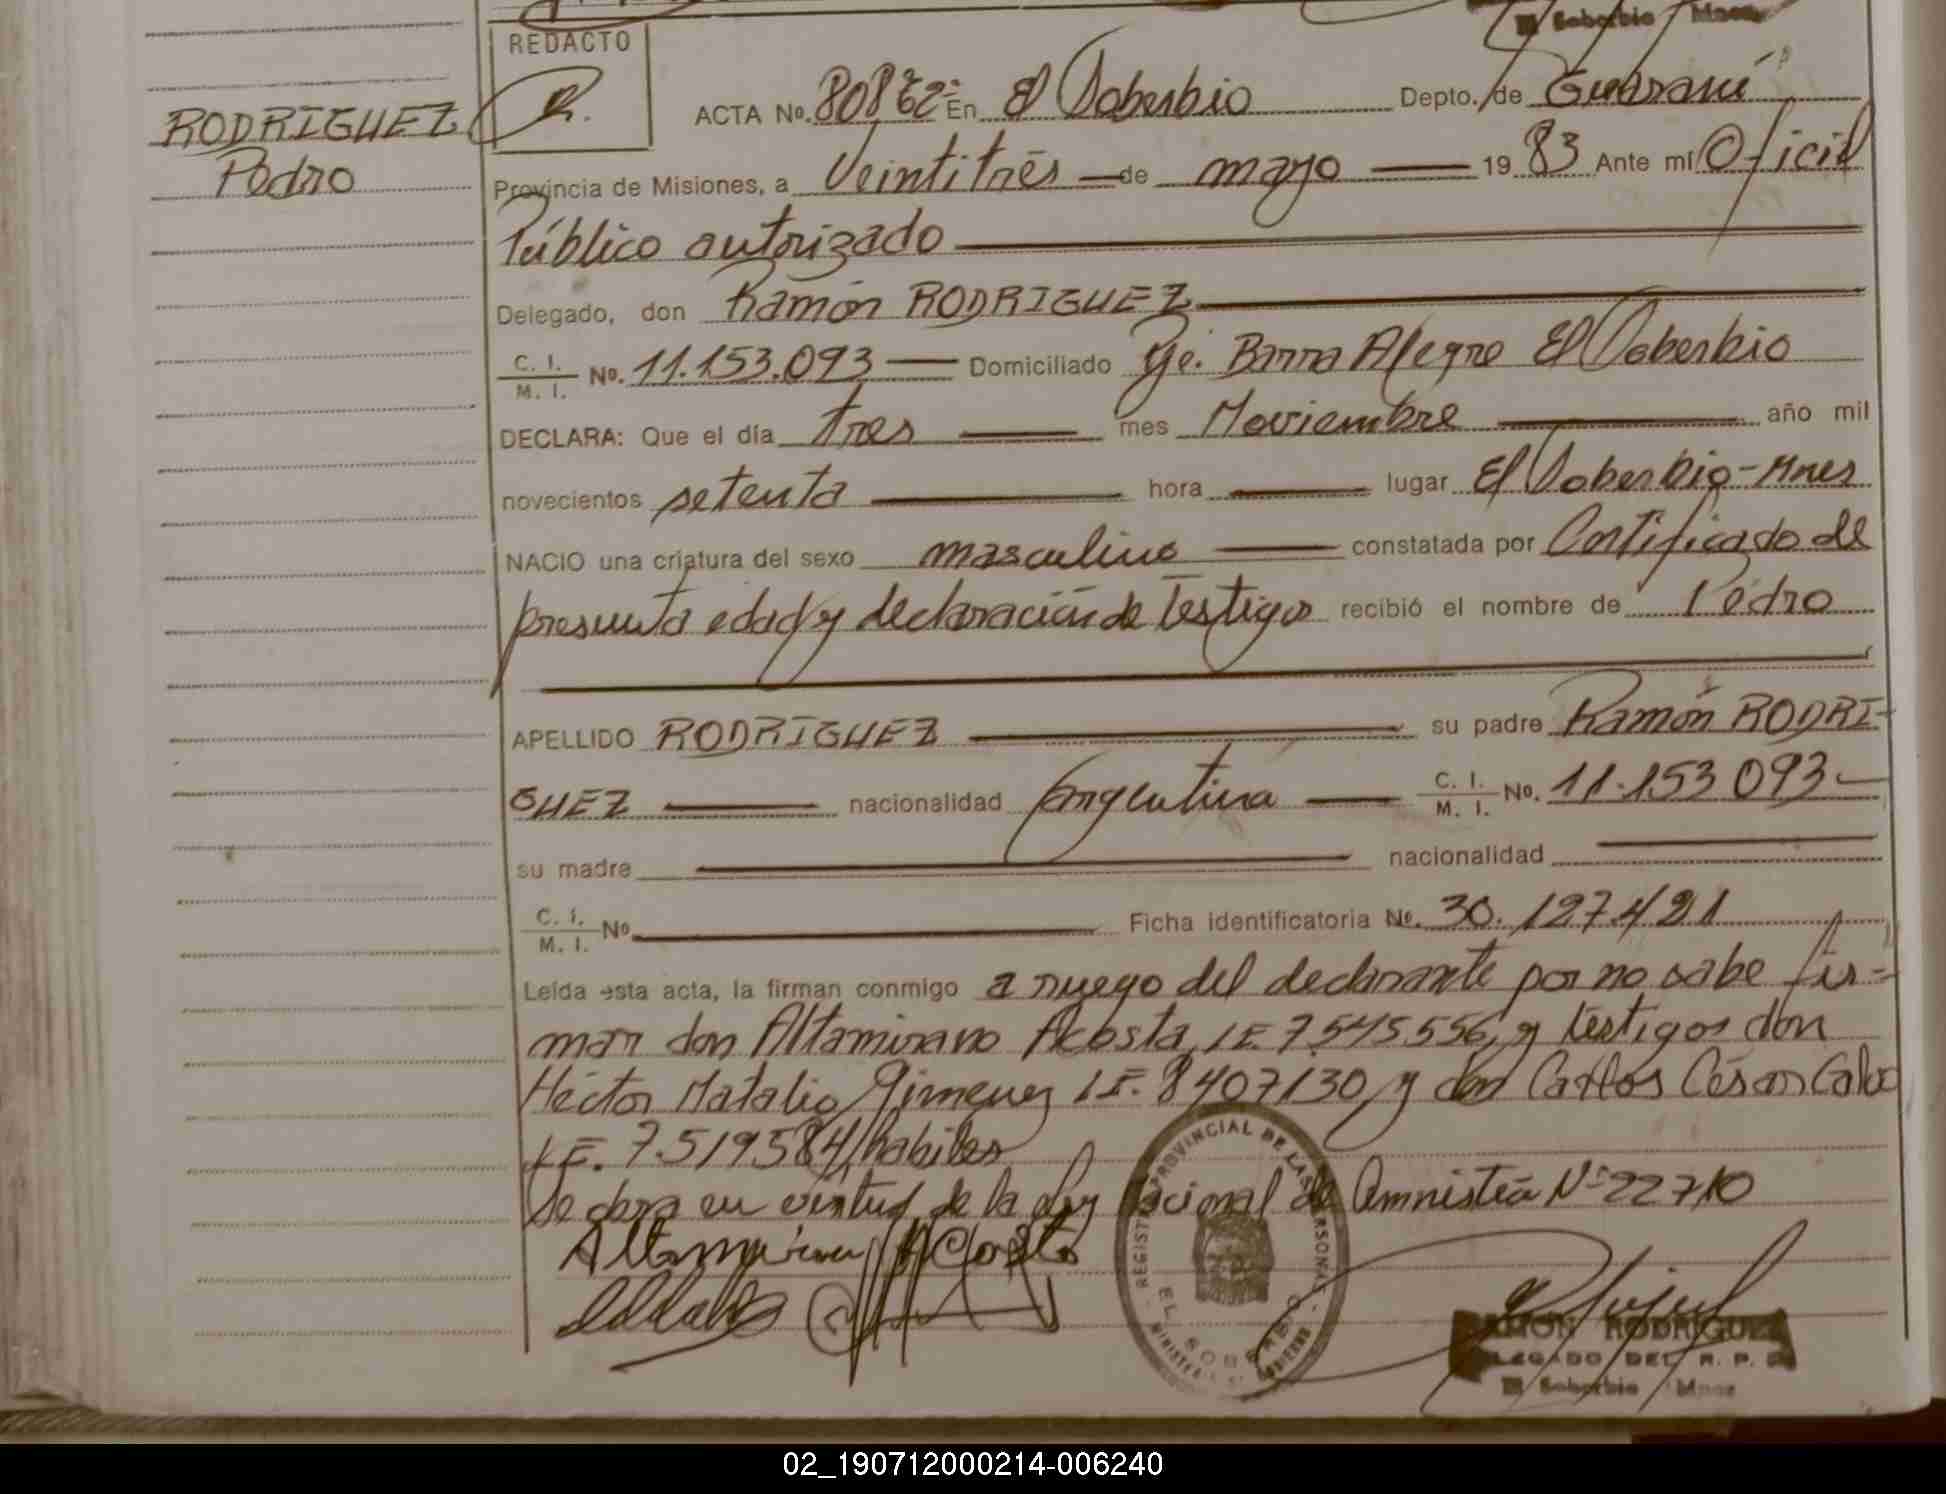 Soberbio Mnes
REDACTO
RODRIGUEZ
Pedro
ACTA Nº. En El Soberbio Depto. de Guaraní
Provincia de Misiones, a Veintitrés de mayo 19 83 Ante mí Oficial
Público autorizado
Delegado, don Ramón RODRIGUEZ
C. I. / M. I. Nº. 11.153.093 Domiciliado Barra Alegre El Soberbio
DECLARA: Que el día tres mes Noviembre año mil
novecientos setenta hora lugar El Soberbio-Mnes
NACIO una criatura del sexo masculino constatada por Certificado de
presunta edad y declaración de Testigos recibió el nombre de Pedro
APELLIDO RODRIGUEZ su padre Ramón RODRI-
GUEZ nacionalidad Argentina C. I. / M. I. Nº. 11.153 093
su madre nacionalidad
C. I. / M. I. Nº Ficha identificatoria Nº. 30.127.421
Leída esta acta, la firman conmigo a ruego del declarante por no sabe fir-
mar don Altamirano Acosta, LE. 7.545.556, y testigos don
Héctor Natalio Gimenez LE. 8407130, y don Carlos César Calvo
LE. 7.519584, habiles
Se obra en virtud de la Ley Nacional de Amnistía Nº 22710
Altamirano Acosta
REGISTRO PROVINCIAL DE LAS PERSONAS
EL SOBERBIO
MINISTERIO DE GOBIERNO
RAMON RODRIGUEZ
DELEGADO DEL R. P. P.
El Soberbio Mnes
02_190712000214-006240